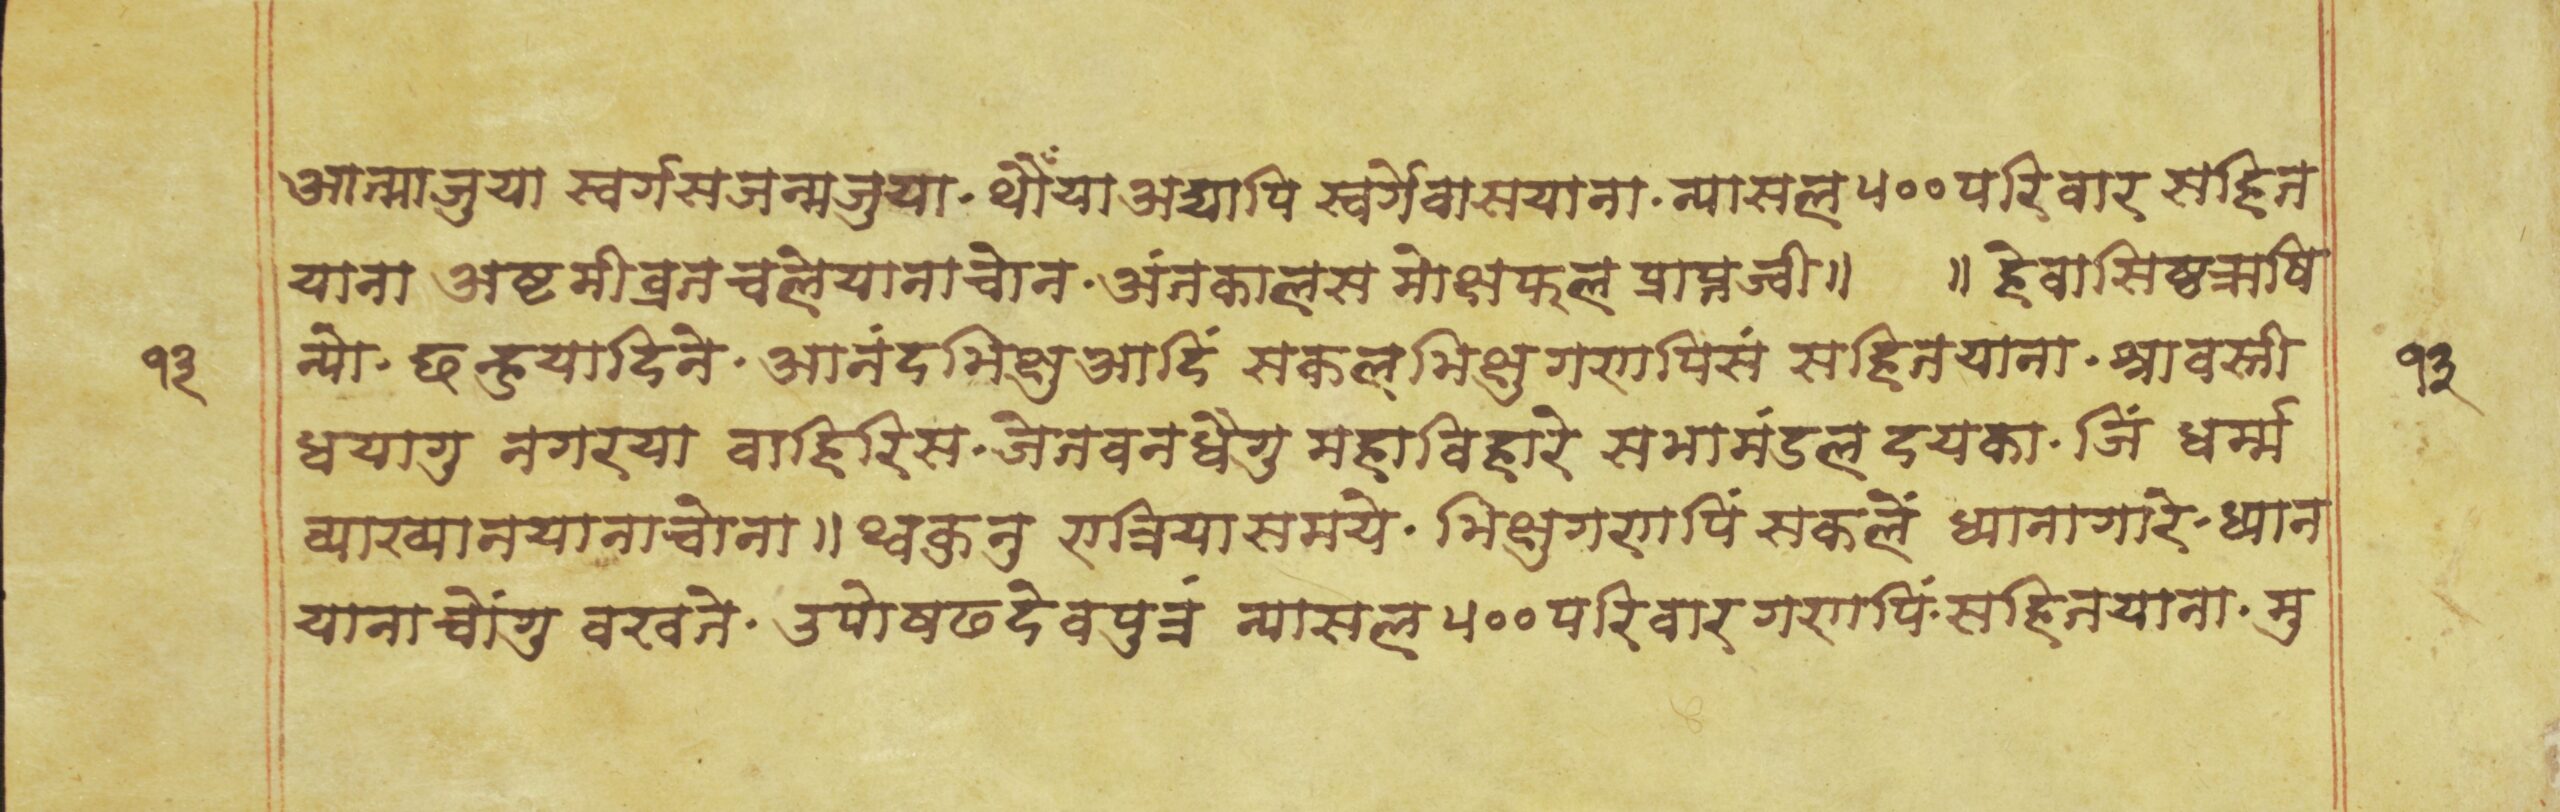 आत्माजुया स्वर्गसजन्मजुया· थौँया अद्यापि स्वर्गेवासयाना· न्यासल ५०० परिवार सहित
याना अष्टमीव्रत चलेयानाचोन· अंतकालस मोक्षफल प्राप्तज्वी॥ ॥ हे वासिष्ठऋषि
न्यो· छन्हुयादिने· आनंदभिक्षुआदिं सकलभिक्षुगणपिसं सहितयाना· श्रावस्ती
१३
१३
धयागु नगरया वाहिरिस· जेतवनधैगु महाविहारे सभामंडल दयका· जिं धर्म्म
व्याख्यानयानाचोना॥ थ्वकुनु रात्रियासमये· भिक्षुगणपिं सकलें ध्यानागारे· ध्यान
यानाचोंगु वखते· उपोषढदेवपुत्रं न्यासल ५०० परिवारगणपिं· सहितयाना· मु